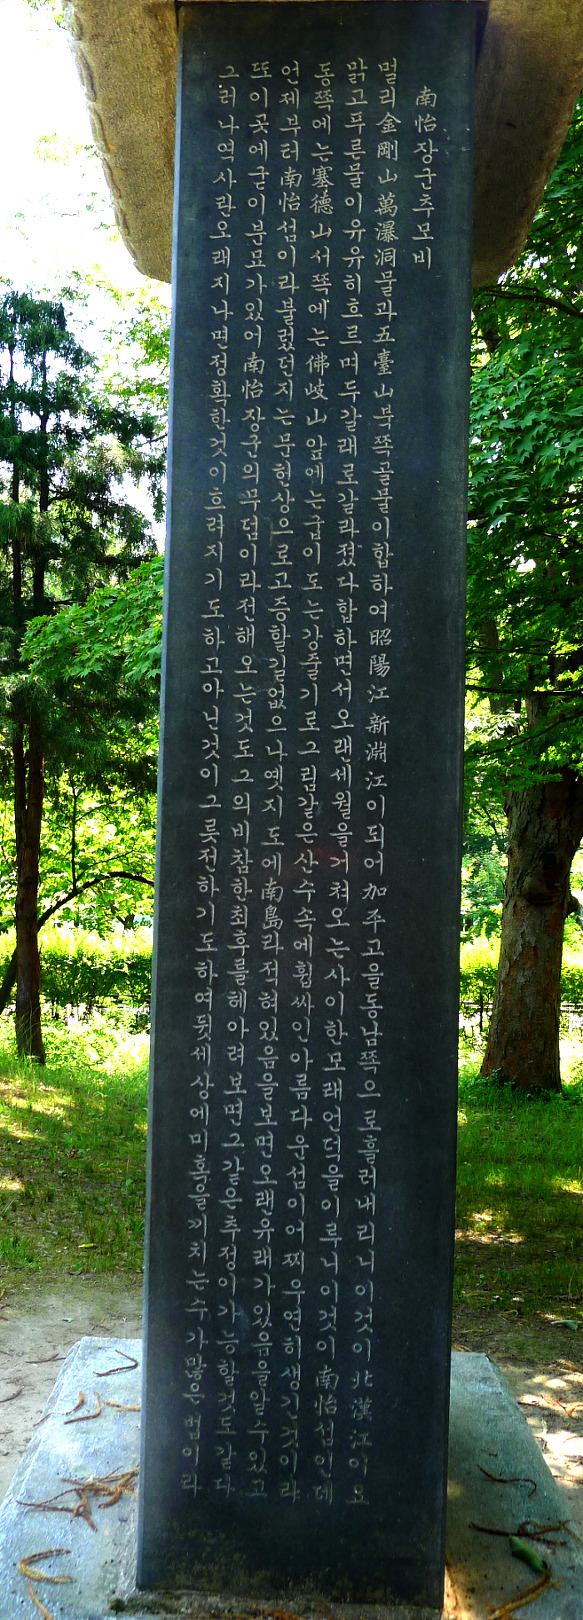 南怡장군추모비
멀리金剛山萬瀑洞물과五臺山북쪽골물이합하여昭陽江新淵江이되어加平고을동남쪽으로흘러내리니이것이北漢江이오
맑고푸른물이유유히흐르며두갈래로갈라졌다합하면서오랜세월을거쳐오는사이한모래언덕을이루니이것이南怡섬인데
동쪽에는塞德山서쪽에는佛岐山앞에는굽이도는강줄기로그림같은산수속에휩싸인아름다운섬이어찌우연히생긴것이랴
언제부터南怡섬이라불렀던지는문헌상으로고증할길없으나옛지도에南島라적혀있음을보면오랜유래가있음을알수있고
또이곳에굳이분묘가있어南怡장군의무덤이라전해오는것도그의비참한최후를헤아려보면그같은추정이가능할것도같다
그러나역사란오래지나면정확한것이흐려지기도하고아닌것이그릇전하기도하여뒷세상에미혹을끼치는수가많은법이라